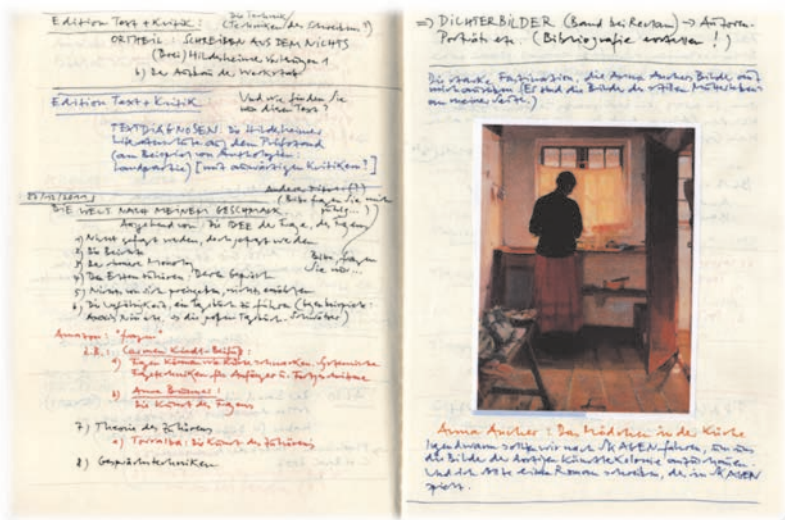 Edition Text + Kritik: Die Technik
(Techniken des Schreibens?)
ORTHEIL: SCHREIBEN AUS DEM NICHTS
(Drei) Hildesheimer Vorlesungen 1
b) Der Aufbau der Werkstatt
Edition Text + Kritik: Und wie finden Sie
den Text?
TEXTDIAGNOSEN. Die Hildesheimer
auf dem Prüfstand
(am Beispiel von Anthologien:
Landpartie) [mit auswärtigen Kritikern?]
DIE WELT NACH MEINEM GESCHMACK
Ausgehend von: Die IDEE der Frage, des Fragens
1) Nicht gefragt werden, doch gefragt werden
2) Die Beichte
3) Der innere Monolog
4) Den Ersten zuhören, Gespräch
5) Nichts von sich preisgeben, nichts erzählen
6) Die Unfähigkeit, ein Tagebuch zu führen
Bitte, fragen
Sie mich...
Amazon: "fragen"
z.B.: Carmen Kindl-Beilfuß:
a) Fragen können wie Küsse schmecken. Systemische
Fragetechniken für Anfänger u. Fortgeschrittene
b) Anna Brunner:
Die Kunst des Fragens
7) Theorie des Zuhörens
a) Torralba: Die Kunst des Zuhörens
8) Gesprächstechniken
=> DICHTERBILDER (Band bei Reclam) -> Autoren-
Porträts etc. (Bibliografie erstellen!)
Die starke Faszination, die Anna Anchers Bilder auf
mich ausüben (Es sind die Bilder des stillen Mutterlebens
an meiner Seite.)
Anna Ancher: Das Mädchen in der Küche
Irgendwann sollten wir nach SKAGEN fahren, um uns
die Bilder der dortigen Künstlerkolonie anzuschauen.
Und ich sollte einen Roman schreiben, der in SKAGEN
spielt.